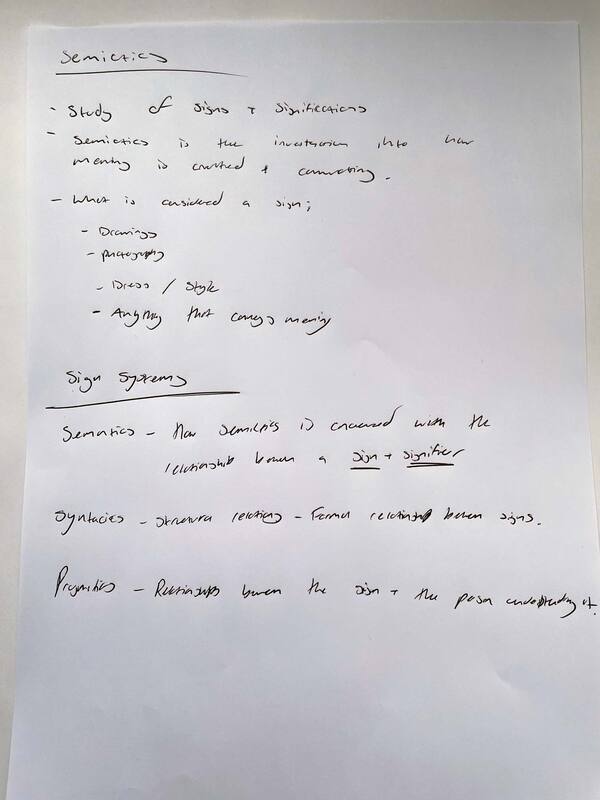 Semiotics
- Study of signs + significations
- Semiotics is the investigation into how
meaning is created + communicating.
- What is considered a sign;
- Drawings
- photography
- Dress / Style
- Anything that conveys meaning
Sign Systems
Semantics - How Semiotics is concerned with the
relationship between a sign + signifier
Syntacics - structural relations - Formal relationship between signs.
Pragmatics - Relationships between the sign + the person understanding it.